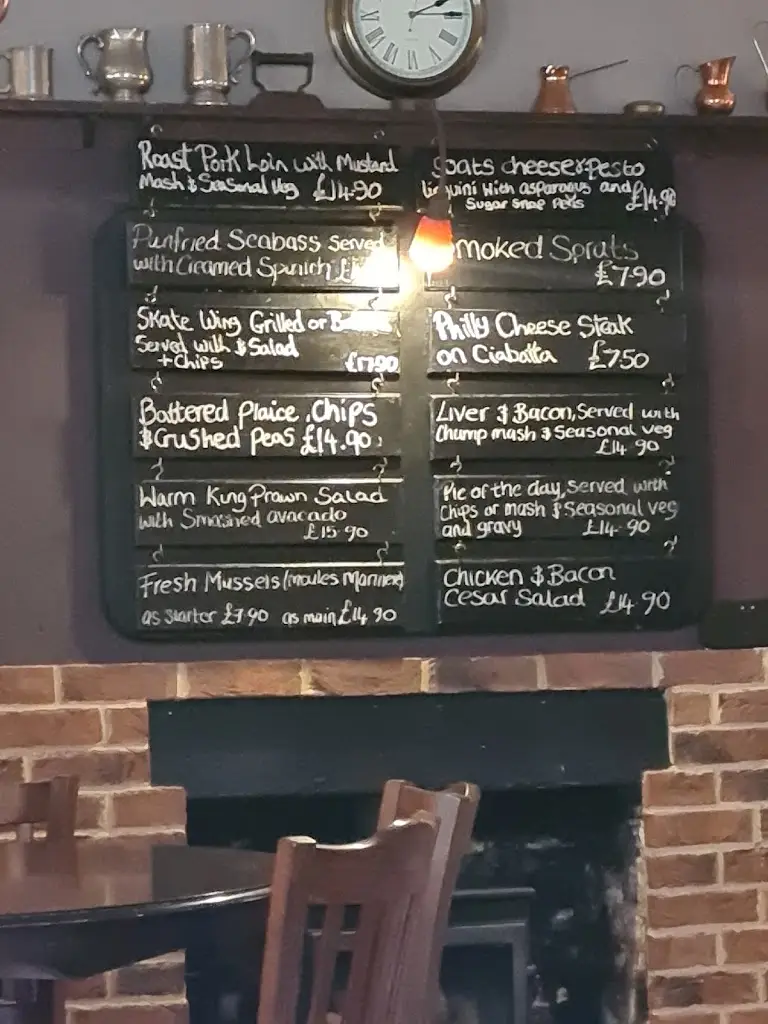 Roast Pork Loin with Mustard
Mash & Seasonal Veg £14.90
Panfried Seabass Served
with Creamed Spinich
Skate Wing Grilled or
Served with $ Salad
+ Chips £17.90
Battered Plaice, Chips
& Crushed Peas £14.90
Warm King Prawn Salad
with Smashed avacado
£15.90
Fresh Mussels (moules Mariniere)
as starter £7.90 as main £14.90
Goats cheese & Pesto
linguini with asparagus and £14.90
Sugar snap Peas
Smoked Sprats
£7.90
Philly Cheese Steak
on Ciabatta £7.50
Liver & Bacon, Served with
Chump mash & Seasonal veg
£14.90
Pie of the day, served with
Chips or mash & Seasonal veg
and gravy £14.90
Chicken & Bacon
Cesar Salad £14.90